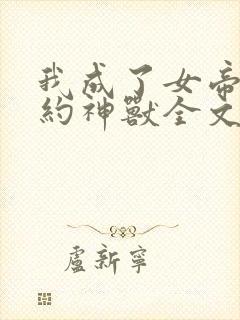 我成了女帝
約神獸全文
盧新寧